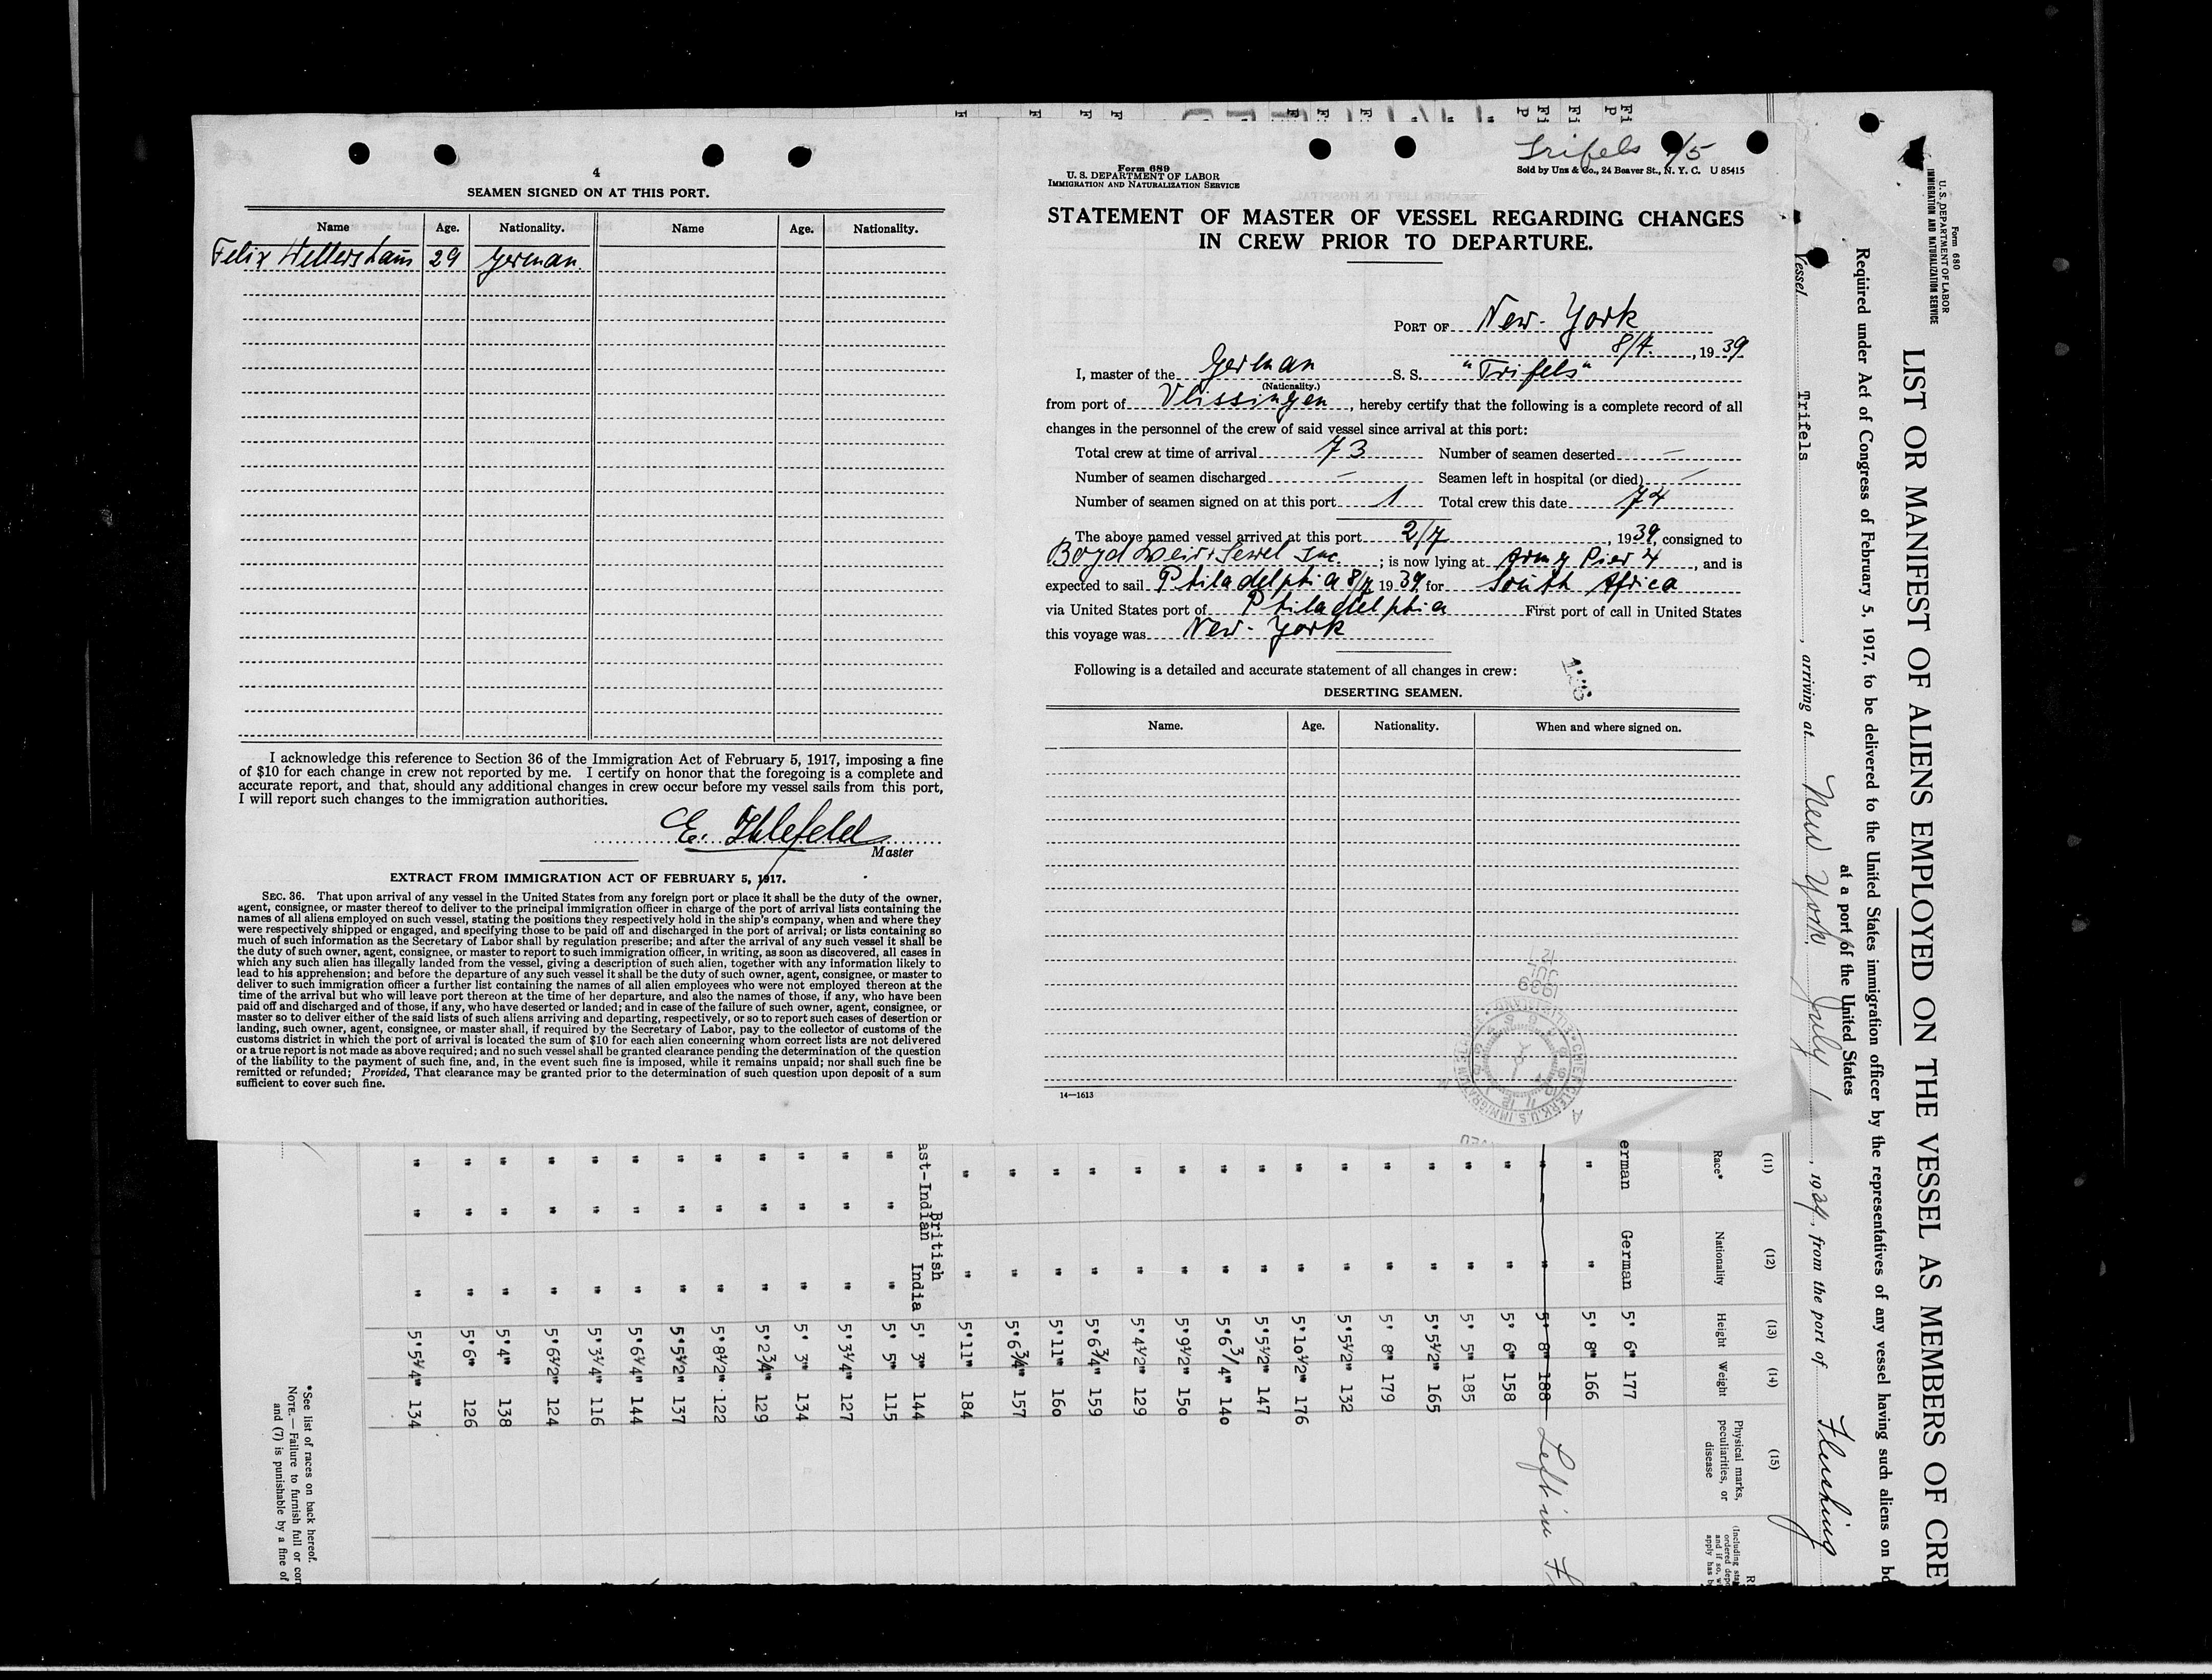 4
SEAMEN SIGNED ON AT THIS PORT.
Name Age. Nationality. Name Age. Nationality.
Felix 29 German.
I acknowledge this reference to Section 36 of the Immigration Act of February 5, 1917, imposing a fine
of $10 for each change in crew not reported by me. I certify on honor that the foregoing is a complete and
accurate report, and that, should any additional changes in crew occur before my vessel sails from this port,
I will report such changes to the immigration authorities.
E. Ihlefeld
Master
EXTRACT FROM IMMIGRATION ACT OF FEBRUARY 5, 1917.
SEC. 36. That upon arrival of any vessel in the United States from any foreign port or place it shall be the duty of the owner,
agent, consignee, or master thereof to deliver to the principal immigration officer in charge of the port of arrival lists containing the
names of all aliens employed on such vessel, stating the positions they respectively hold in the ship's company, when and where they
were respectively shipped or engaged, and specifying those to be paid off and discharged in the port of arrival; or lists containing so
much of such information as the Secretary of Labor shall by regulation prescribe; and after the arrival of any such vessel it shall be
the duty of such owner, agent, consignee, or master to report to such immigration officer, in writing, as soon as discovered, all cases in
which any such alien has illegally landed from the vessel, giving a description of such alien, together with any information likely to
lead to his apprehension; and before the departure of any such vessel it shall be the duty of such owner, agent, consignee, or master to
deliver to such immigration officer a further list containing the names of all alien employees who were not employed thereon at the
time of the arrival but who will leave port thereon at the time of her departure, and also the names of those, if any, who have been
paid off and discharged and of those, if any, who have deserted or landed; and in case of the failure of such owner, agent, consignee, or
master so to deliver either of the said lists of such aliens arriving and departing, respectively, or so to report such cases of desertion or
landing, such owner, agent, consignee, or master shall, if required by the Secretary of Labor, pay to the collector of customs of the
customs district in which the port of arrival is located the sum of $10 for each alien concerning whom correct lists are not delivered
or a true report is not made as above required; and no such vessel shall be granted clearance pending the determination of the question
of the liability to the payment of such fine, and, in the event such fine is imposed, while it remains unpaid; nor shall such fine be
remitted or refunded; Provided, That clearance may be granted prior to the determination of such question upon deposit of a sum
sufficient to cover such fine.
Trifels /5
Form 689
U. S. DEPARTMENT OF LABOR
IMMIGRATION AND NATURALIZATION SERVICE
Sold by Unz & Co., 24 Beaver St., N. Y. C. U 85415
STATEMENT OF MASTER OF VESSEL REGARDING CHANGES
IN CREW PRIOR TO DEPARTURE.
PORT OF New-York
8/7. , 19 39
I, master of the German S. S. "Trifels"
(Nationality.)
from port of Vlissingen , hereby certify that the following is a complete record of all
changes in the personnel of the crew of said vessel since arrival at this port:
Total crew at time of arrival 73 Number of seamen deserted —
Number of seamen discharged — Seamen left in hospital (or died) —
Number of seamen signed on at this port 1 Total crew this date 74
The above named vessel arrived at this port 2/7 , 1939, consigned to
Boyd Weir & Sewel Inc. ; is now lying at Army Pier 4 , and is
expected to sail Philadelphia 8/7 1939, for South Africa
via United States port of Philadelphia First port of call in United States
this voyage was New-York
Following is a detailed and accurate statement of all changes in crew:
DESERTING SEAMEN.
Name. Age. Nationality. When and where signed on.
1939
JUL
CHIEF CLERK, U.S. IMMIGRATION
14—1613
Form 680
U. S. DEPARTMENT OF LABOR
IMMIGRATION AND NATURALIZATION SERVICE
LIST OR MANIFEST OF ALIENS EMPLOYED ON THE VESSEL AS MEMBERS OF CRE
Required under Act of Congress of February 5, 1917, to be delivered to the United States immigration officer by the representatives of any vessel having such aliens on bo
at a port of the United States
Vessel Trifels , arriving at New York July 1 , 1939, from the port of Flushing
(11) (12) (13) (14) (15)
Race* Nationality Height Weight Physical marks, peculiarities, or disease
erman German 5' 6" 177
" " 5' 8" 166
" " 5' 8" 188 Left in
" 5' 6" 158
" " 5' 5" 185
" " 5'5½" 165
" " 5' 8" 179
" " 5'5½" 132
" " 5'10½" 176
" " 5'5½" 147
" " 5'6¾" 140
" " 5'9½" 150
" " 5'4½" 129
" " 5'6¾" 159
" " 5'11" 160
" " 5'6¾" 157
" " 5'11" 184
British
ast-Indian India 5' 3" 144
" " " 5' 5" 115
" " " 5'3¼" 127
" " " 5' 3" 134
" " " 5'2¾" 129
" " " 5'8½" 122
" " " 5'5½" 137
" " " 5'6¼" 144
" " " 5'3¼" 116
" " " 5'6½" 124
" " " 5'4" 138
" " " 5'6" 126
" " " 5'5¼" 134
*See list of races on back hereof.
NOTE.—Failure to furnish full or cor
and (7) is punishable by a fine of